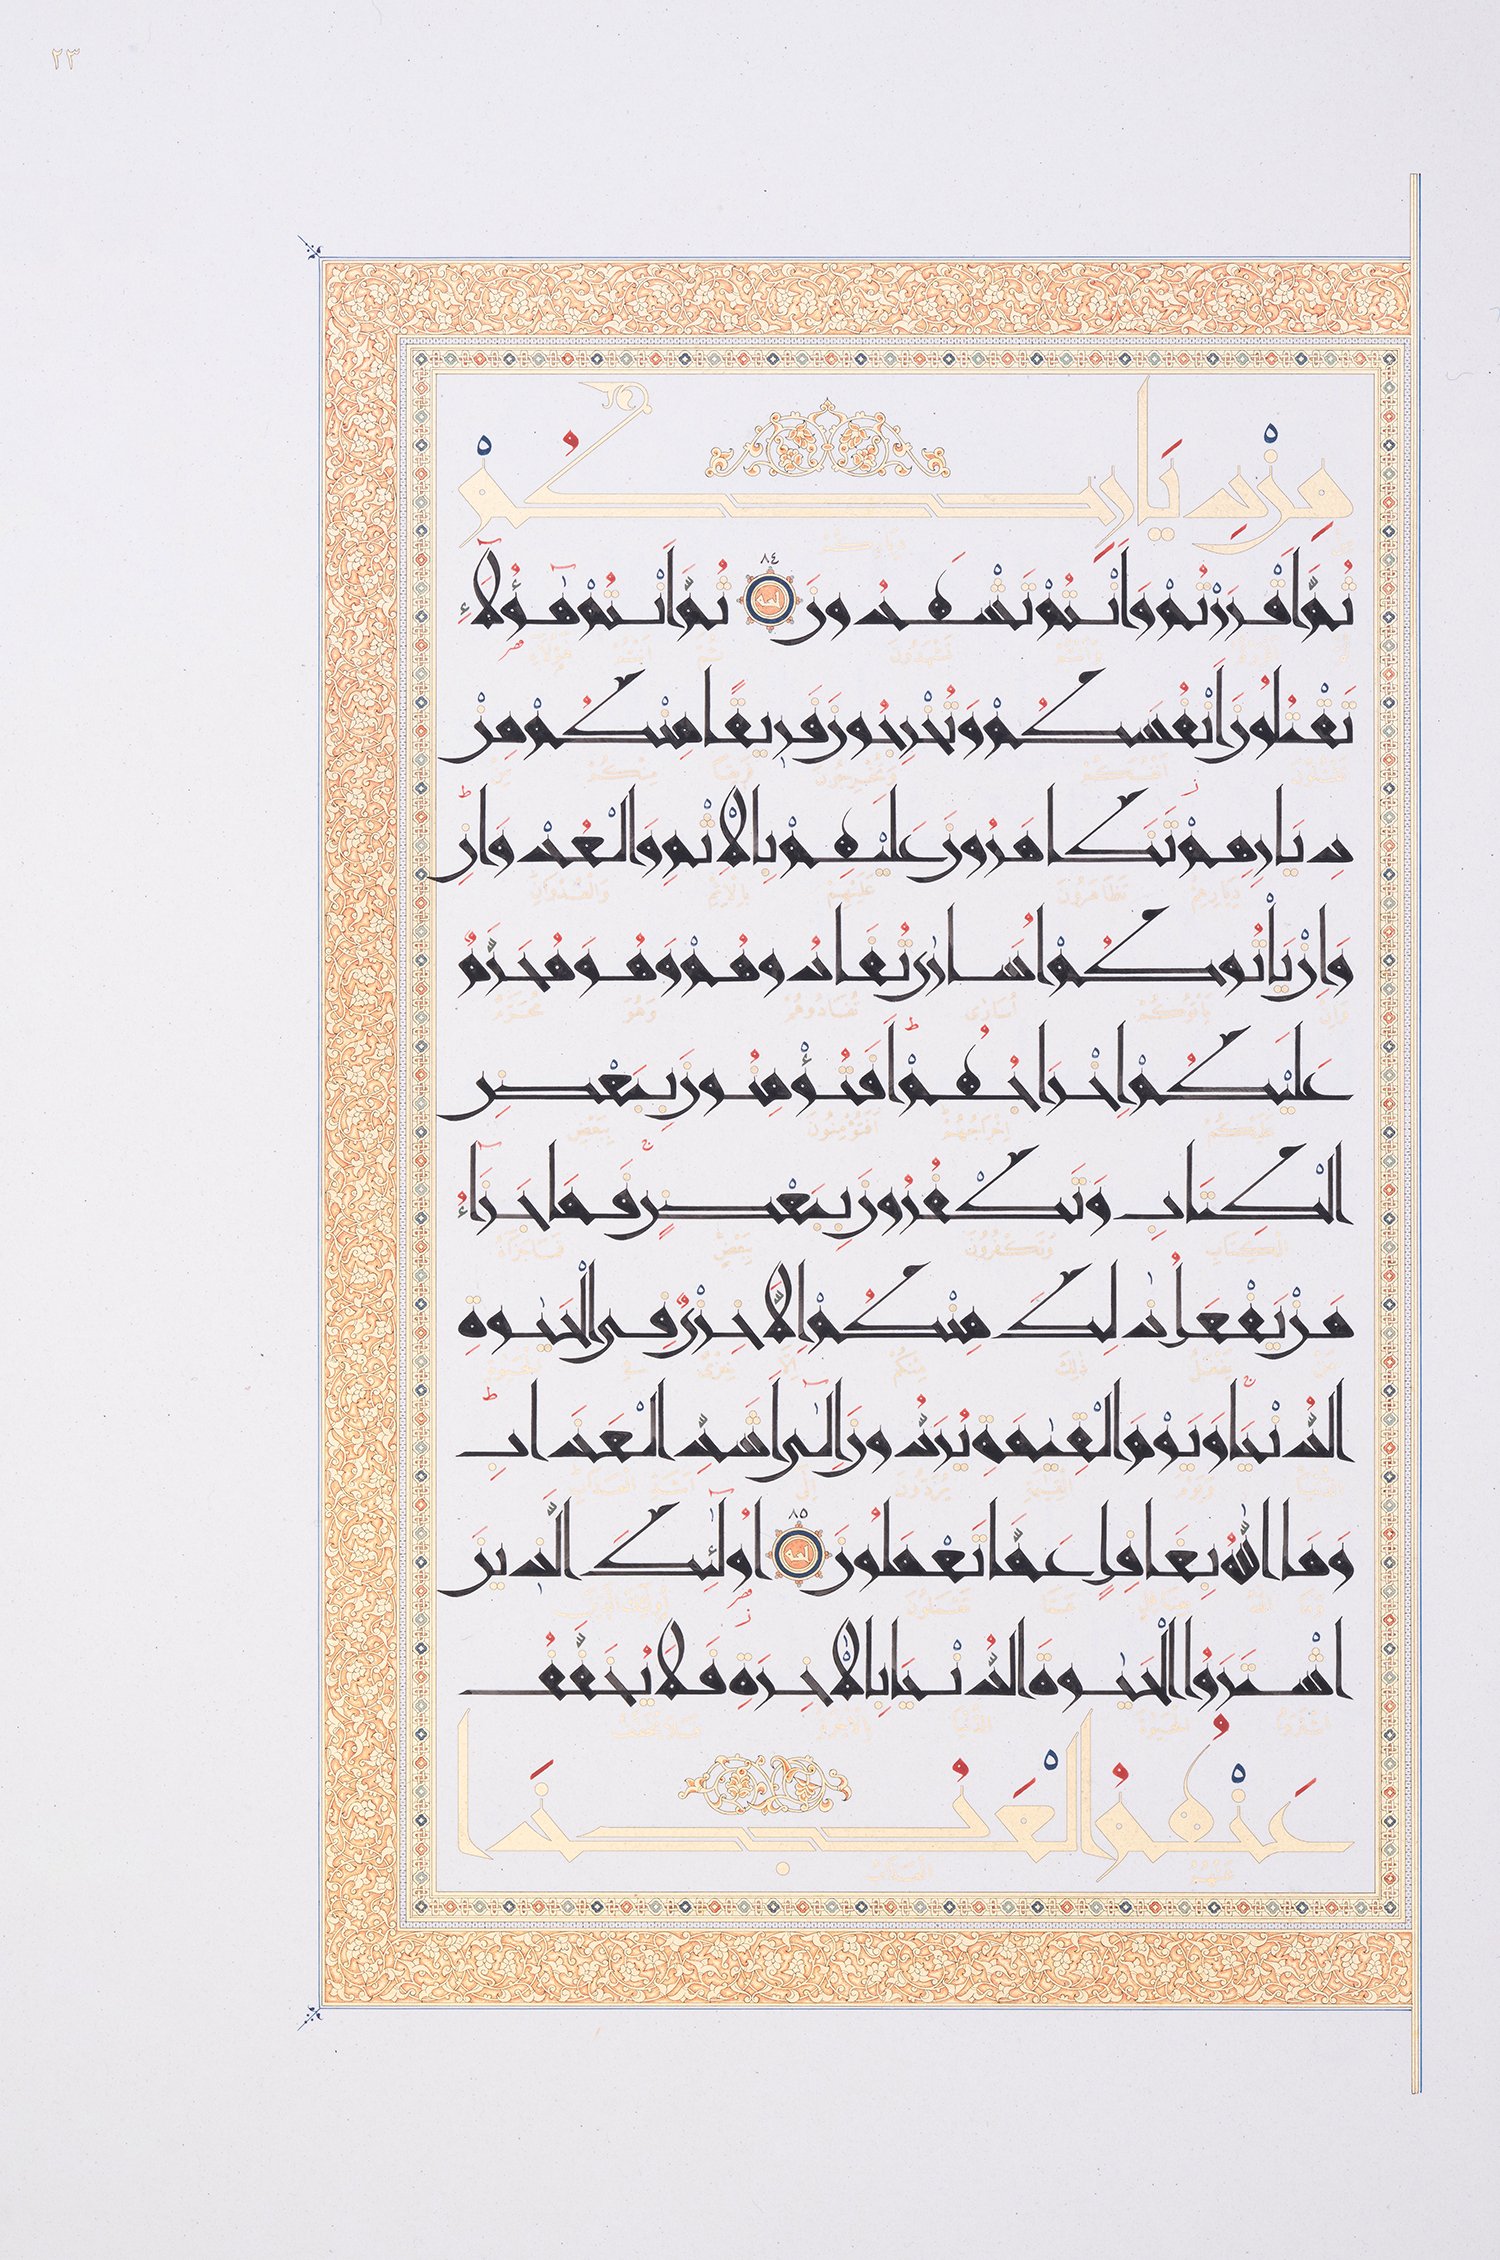 ٢٣
مِنْ دِيَارِكُمْ
ثُمَّ اَقْرَرْتُمْ وَاَنْتُمْ تَشْهَدُونَ ٨٤ ثُمَّ اَنْتُمْ هٰٓؤُلَٓاءِ
تَقْتُلُونَ اَنْفُسَكُمْ وَتُخْرِجُونَ فَرِيقًا مِنْكُمْ مِنْ
دِيَارِهِمْ تَظَاهَرُونَ عَلَيْهِمْ بِالْاِثْمِ وَالْعُدْوَانِ
وَاِنْ يَأْتُوكُمْ اُسَارٰى تُفَادُوهُمْ وَهُوَ مُحَرَّمٌ
عَلَيْكُمْ اِخْرَاجُهُمْ اَفَتُؤْمِنُونَ بِبَعْضِ
الْكِتَابِ وَتَكْفُرُونَ بِبَعْضٍ فَمَا جَزَٓاءُ
مَنْ يَفْعَلُ ذٰلِكَ مِنْكُمْ اِلَّا خِزْيٌ فِي الْحَيٰوةِ
الدُّنْيَا وَيَوْمَ الْقِيٰمَةِ يُرَدُّونَ اِلٰٓى اَشَدِّ الْعَذَابِ
وَمَا اللّٰهُ بِغَافِلٍ عَمَّا تَعْمَلُونَ ٨٥ اُولٰٓئِكَ الَّذِينَ
اشْتَرَوُا الْحَيٰوةَ الدُّنْيَا بِالْاٰخِرَةِ فَلَا يُخَفَّفُ
عَنْهُمُ الْعَذَابُ